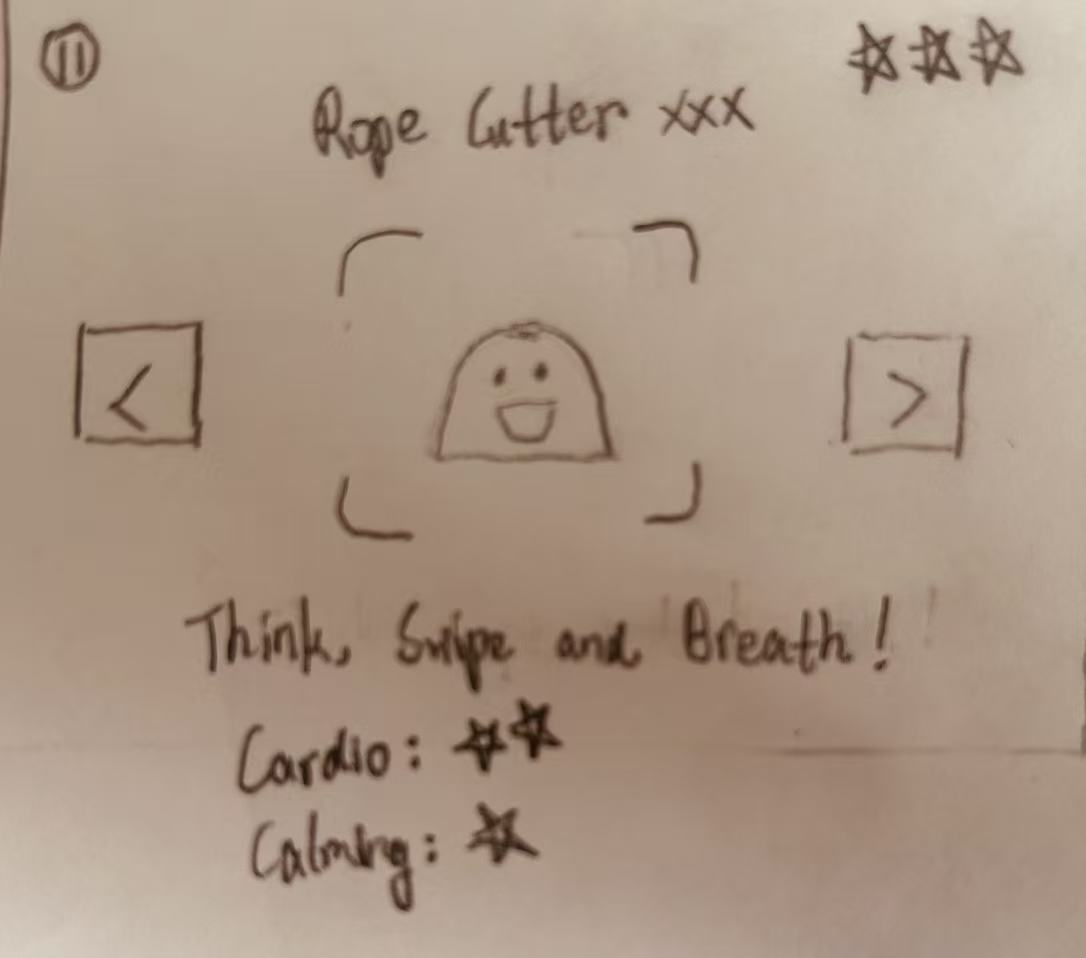 Rope Cutter xxx
<
>
Think, Swipe and Breath!
Cardio: ★★
Calming: ★